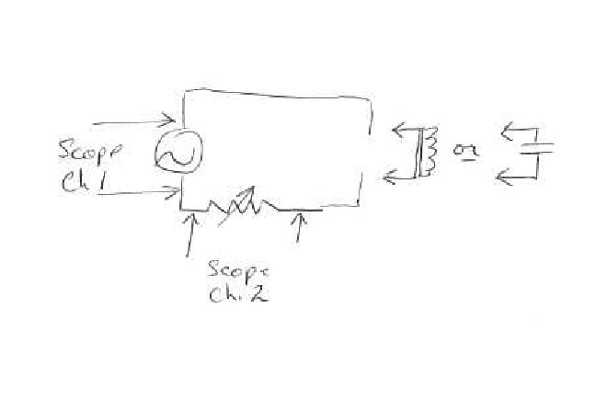 Scope
Ch 1
or
Scope
Ch. 2